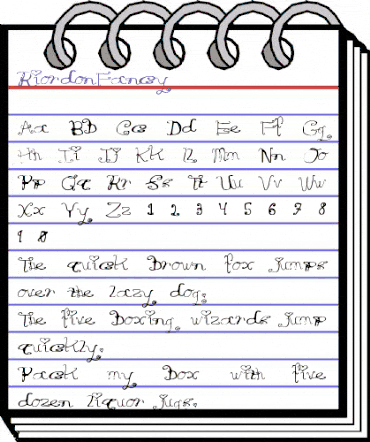 RiordonFancy
Aa Bb Cc Dd Ee Ff Gg
Hh Ii Jj Kk Ll Mm Nn Oo
Pp Qq Rr Ss Tt Uu Vv Ww
Xx Yy Zz 1 2 3 4 5 6 7 8
9 0
The quick brown fox jumps
over the lazy dog.
The five boxing wizards jump
quickly.
Pack my box with five
dozen liquor jugs.